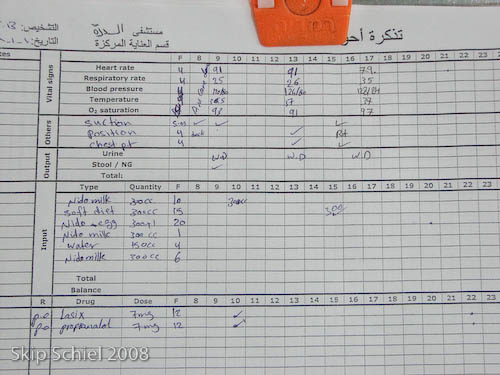 تذكرة
مستشفى
قسم العناية المركزة
التشخيص:
التاريخ:
Vital signs F 8 9 10 11 12 13 14 15 16 17 18 19 20 21 22 23
Heart rate 4 91 91 79
Respiratory rate 4 25 26 35
Blood pressure
Temperature 37 37
O₂ saturation 4 98 91 97
Others
suction ✓ ✓ ✓
position 4 back ✓ Rt
chest pt 4 ✓ ✓
Output
Urine W.D W.D W.D
Stool / NG ✓
Total:
Input
Type Quantity F 8 9 10 11 12 13 14 15 16 17 18 19 20 21 22 23
Nido milk 300cc 10 300cc
Soft diet 300cc 15 300
Nido + egg 300ml 20
Nido milk 300cc 1
water 150cc 4
Nido milk 300cc 6
Total
Balance
R Drug Dose F 8 9 10 11 12 13 14 15 16 17 18 19 20 21 22 23
p.o lasix 7mg 12 ✓
p.o propranolol 7mg 12 ✓
Skip Schiel 2008